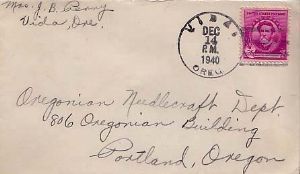 Mrs. J. B. Perry
Vida, Ore.
VIDA
DEC
14
P.M.
1940
OREG.
Oregonian Needlecraft Dept.
806 Oregonian Building
Portland, Oregon